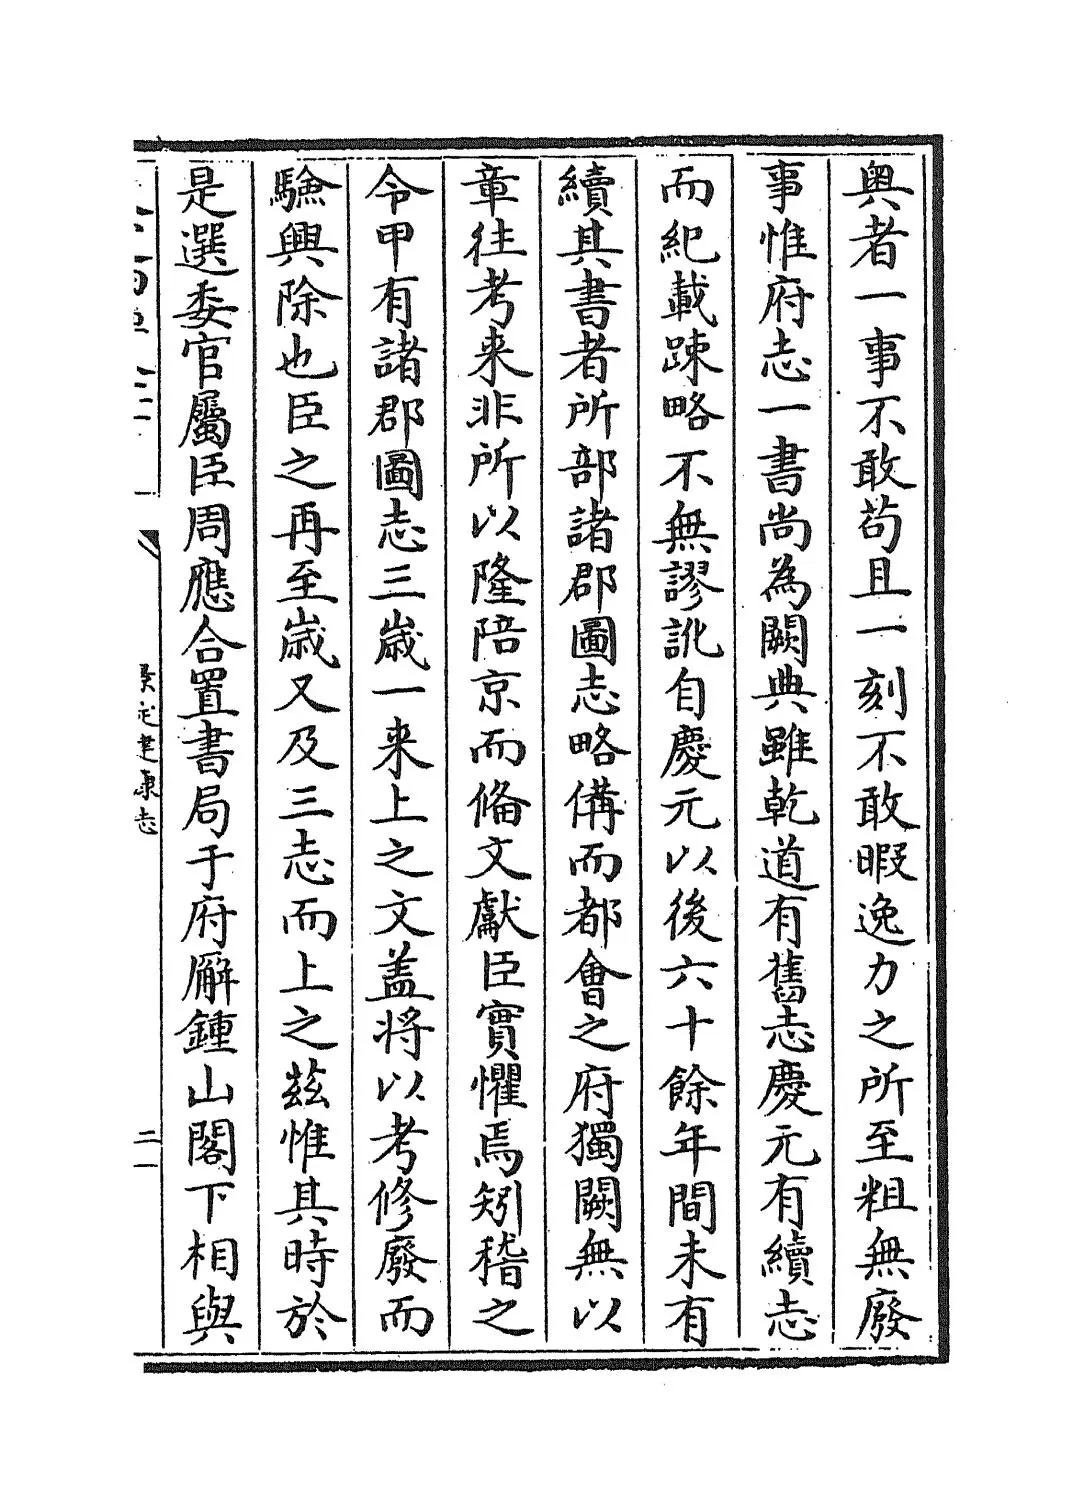 奥者一事不敢苟且一刻不敢暇逸力之所至粗無廢
事惟府志一書尚為闕典雖乾道有舊志慶元有續志
而紀載踈略不無謬訛自慶元以後六十餘年間未有
續其書者所部諸郡圖志略備而都會之府獨闕無以
章往考来非所以隆陪京而脩文獻臣實懼焉矧稽之
令甲有諸郡圖志三歳一来上之文盖将以考修廢而
驗興除也臣之再至歳又及三志而上之兹惟其時於
是選委官屬臣周應合置書局于府廨鍾山閣下相與
景定建康志
二